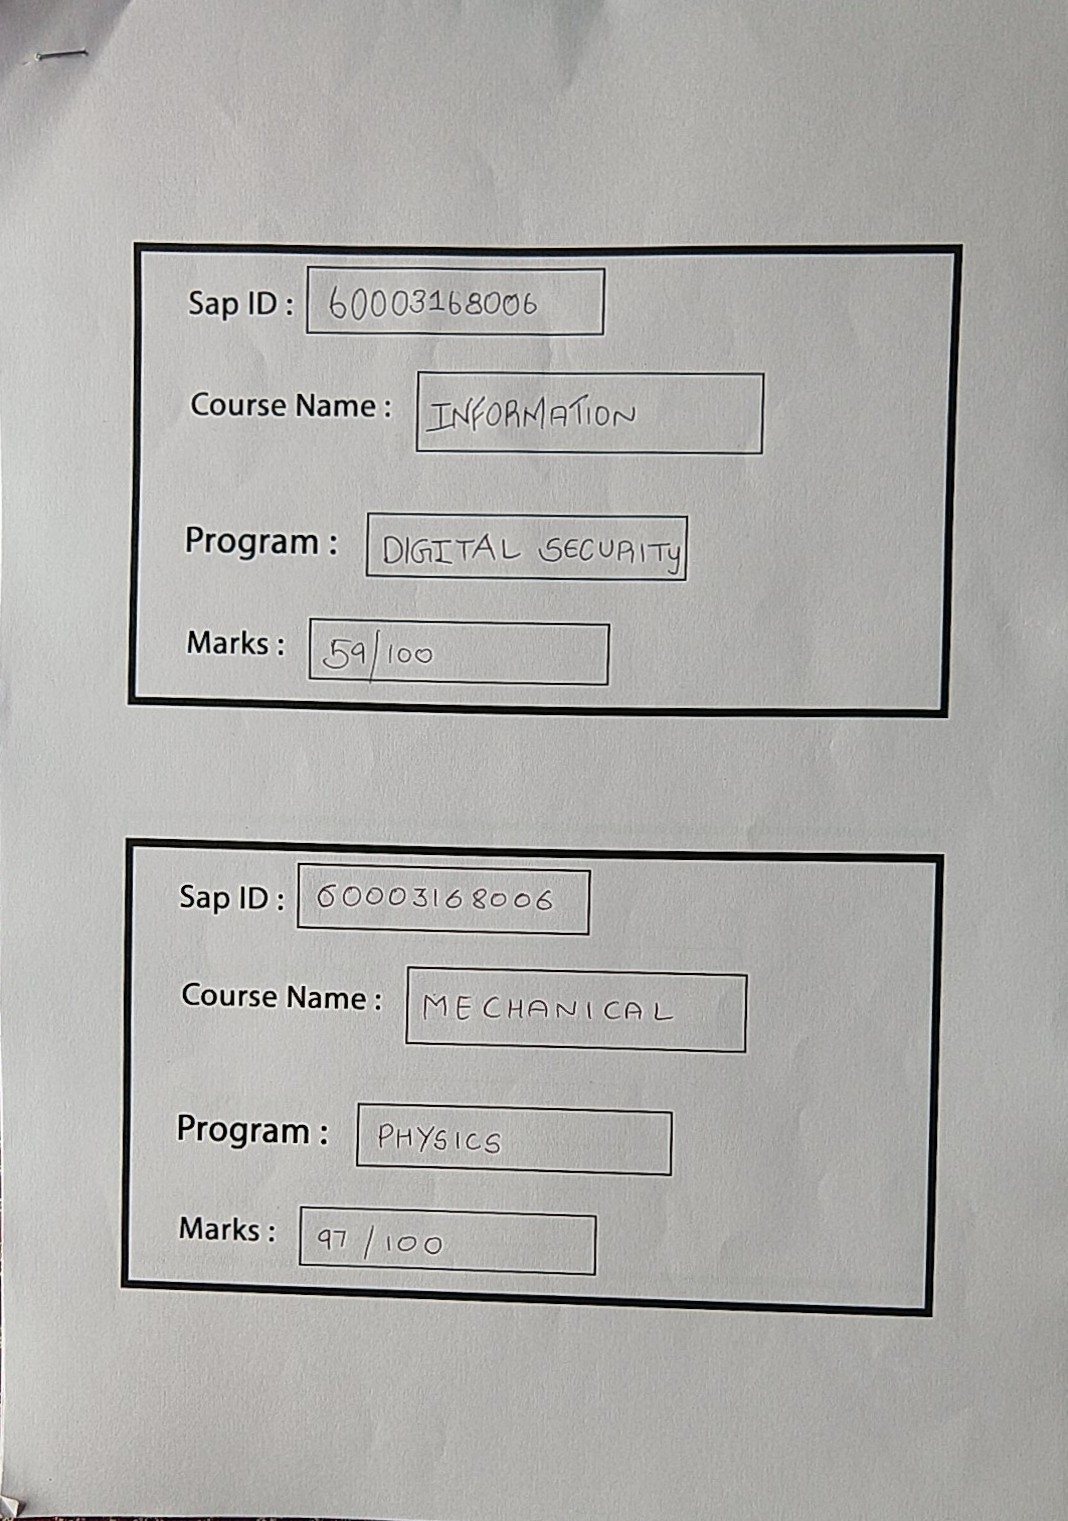 Sap ID : 60003168006
Course Name : INFORMATION
Program : DIGITAL SECURITY
Marks : 59/100
Sap ID : 60003168006
Course Name : MECHANICAL
Program : PHYSICS
Marks : 97 / 100